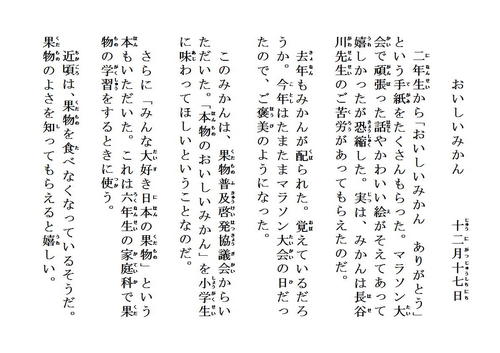 おいしいみかん　　十二月十七日
　二年生から「おいしいみかん　ありがとう」
という手紙をたくさんもらった。マラソン大
会で頑張った話やかわいい絵がそえてあって
嬉しかったが恐縮した。実は、みかんは長谷
川先生のご苦労があってもらえたのだ。
　去年もみかんが配られた。覚えているだろ
うか。今年はたまたまマラソン大会の日だっ
たので、ご褒美のようになった。
　このみかんは、果物普及啓発協議会からい
ただいた。「本物のおいしいみかん」を小学生
に味わってほしいということなのだ。
　さらに「みんな大好き日本の果物」という
本もいただいた。これは六年生の家庭科で果
物の学習をするときに使う。
　近頃は、果物を食べなくなっているそうだ。
果物のよさを知ってもらえると嬉しい。